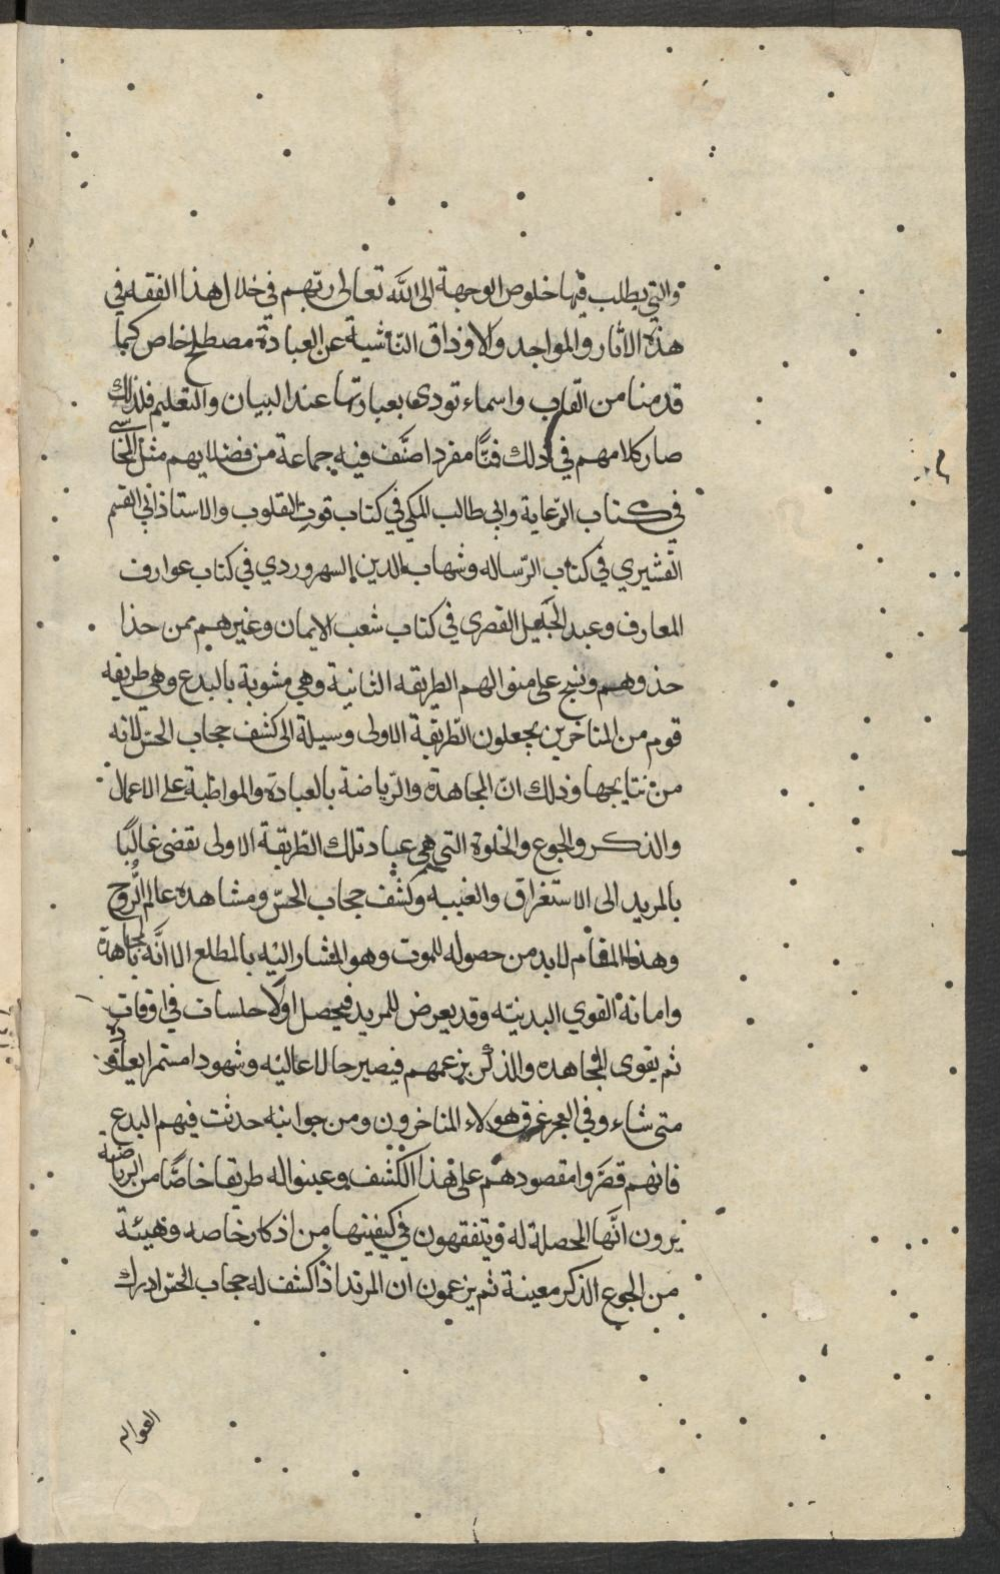 والتي يطلب فيها خلوص الوجهة الى الله تعالى ربهم في خلال هذا الفقه في
هذه الاثار والمواجد والاوذاق الناشية عن العبادة مصطلح خاص كما
قدمنا من القلوب واسماء تودى بعباراتها عند البيان والتعليم فلذلك
صار كلامهم في ذلك فنًّا مفردا صنَّف فيه جماعة من فضلايهم مثل المحاسبي
في كتاب الرعاية وابي طالب المكي في كتاب قوت القلوب والاستاذ ابي القسم
القشيري في كتاب الرساله وشهاب الدين السهروردي في كتاب عوارف
المعارف وعبد الجليل القصرى في كتاب شعب الايمان وغيرهم ممن حذا
حذوهم ونسج على منوالهم الطريقه الثانية وهي مشوبة بالبدع وهي طريقه
قوم من المتاخرين يجعلون الطريقة الاولى وسيلة الى كشف حجاب الحس لانه
من نتايجها وذلك انّ المجاهدة والرياضة بالعبادة والمواظبة على الاعمال
والذكر والجوع والخلوة التي هي عباد تلك الطريقة الاولى تفضى غالبًا
بالمريد الى الاستغراق والغيبه وكشف حجاب الحسّ ومشاهده عالم الرُّوح
وهذا المقام لابد من حصوله للموت وهو المشار اليه بالمطلع الا انَّه بالمجاهدة
واماتة القوي البدنيّه وقد يعرض للمريد فيحصل اولًا خلسات في اوقات
ثم يقوى المجاهده والذكر بزعمهم فيصير حالا عاليه وشهودا مستمرا
متى شاء وفي البحر غرق هولاء المتاخرون ومن جوانبه حدثت فيهم البدع
فانهم قصَّروا مقصودهم على هذا الكشف وعينوا له طريقا خاصًّا من الرياضية
يرون انَّها المحصلة له ويتفقهون في كيفيتها من اذكار خاصه وهيئة
من الجوع الذكر معينة ثم يزعمون ان المرتد اذا كشف له حجاب الحس ادرك
العوالم